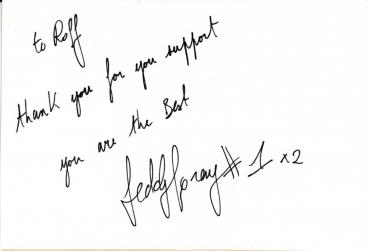 to Rolf
thank you for you support
you are the Best
Teddy Goray # 1 x2